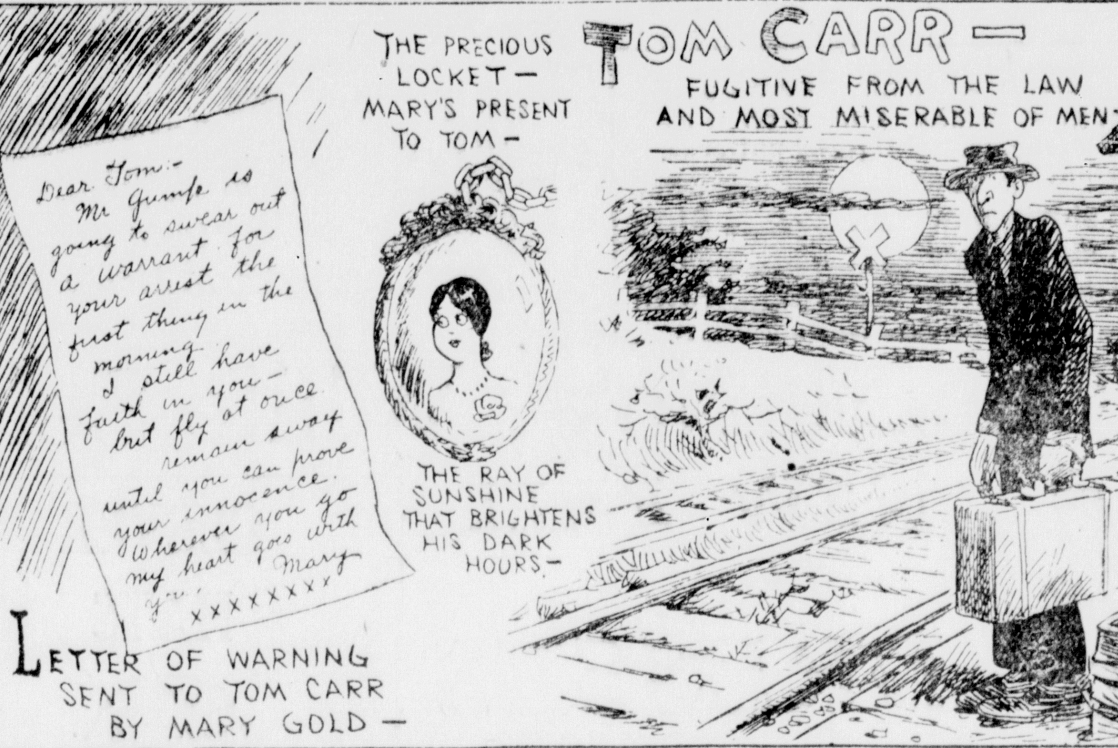 Dear Tom:-
Mr Gump is
going to swear out
a warrant for
your arrest the
first thing in the
morning.
I still have
faith in you-
but fly at once
remain away
until you can prove
your innocence.
Wherever you go
my heart goes with
you.
Mary
xxxxxxxx
LETTER OF WARNING
SENT TO TOM CARR
BY MARY GOLD —
THE PRECIOUS
LOCKET —
MARY'S PRESENT
TO TOM —
THE RAY OF
SUNSHINE
THAT BRIGHTENS
HIS DARK
HOURS —
TOM CARR —
FUGITIVE FROM THE LAW
AND MOST MISERABLE OF MEN